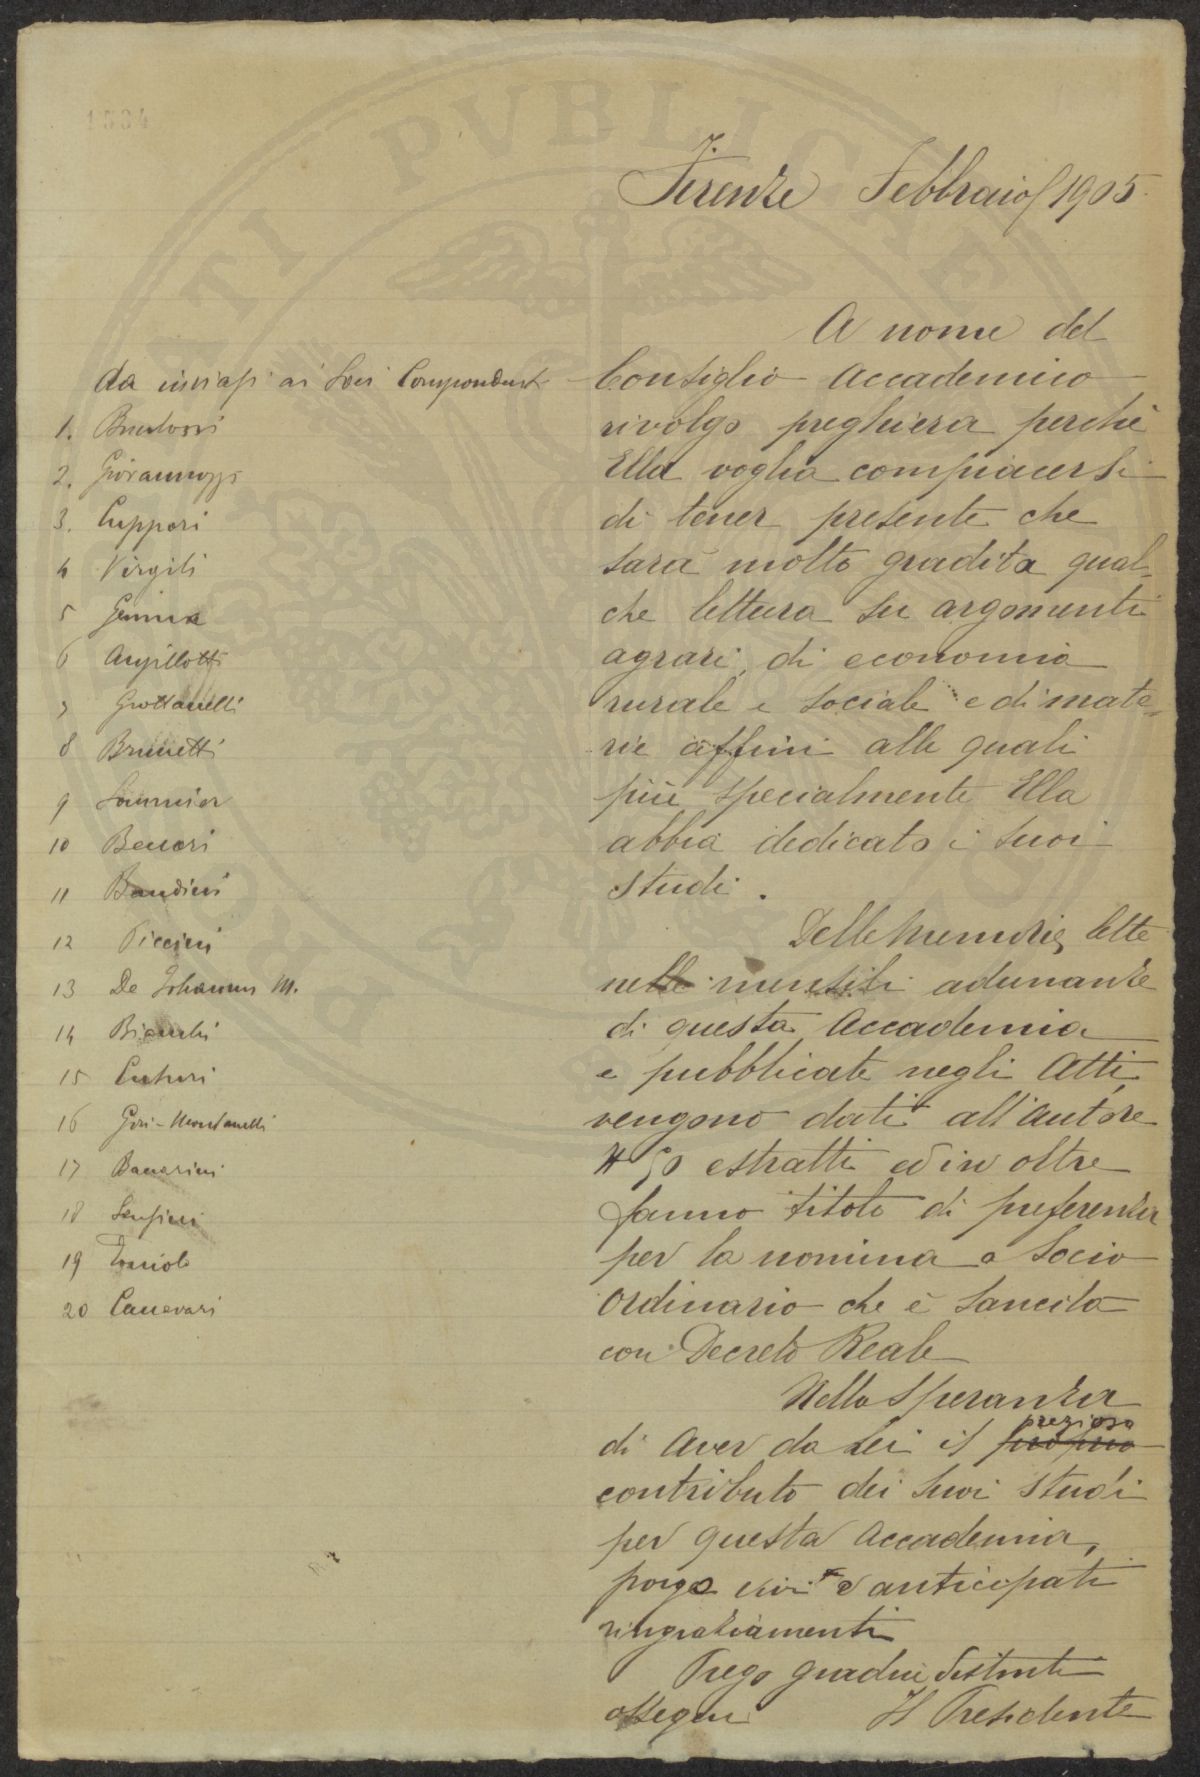 1534
Firenze 7. Febbraio 1905
da inviarsi ai Soci Corrispondenti
1.
2. Giovannozzi
3. Cuppari
4 Virgili
5
6 Arpillotti
7 Grottanelli
8 Brunetti
9 Sommier
10 Benari
11 Bandini
12 Piccini
13 De Johannis M.
14 Bianchi
15 Cuturi
16 Gori-Montanelli
17
18 Sensini
19 Toniolo
20 Canevari
A nome del
Consiglio Accademico
rivolgo preghiera perchè
Ella voglia compiacersi
di tener presente che
sarà molto gradita qual-
che lettura su argomenti
agrari, di economia
rurale e sociale e di mate-
rie affini alle quali
più specialmente Ella
abbia dedicato i suoi
studi.
Delle memorie lette
nelle mensili adunanze
di questa Accademia
e pubblicate negli Atti,
vengono dati all'autore
50 estratti ed in oltre
fanno titolo di preferenza
per la nomina a Socio
Ordinario che è sancita
con Decreto Reale
Nella speranza
prezioso
di aver da Lei il proprio
contributo dei suoi studi
per questa Accademia,
porgo vivi e anticipati
ringraziamenti
Prego gradire distinti
ossequi Il Presidente
PVBLICAE